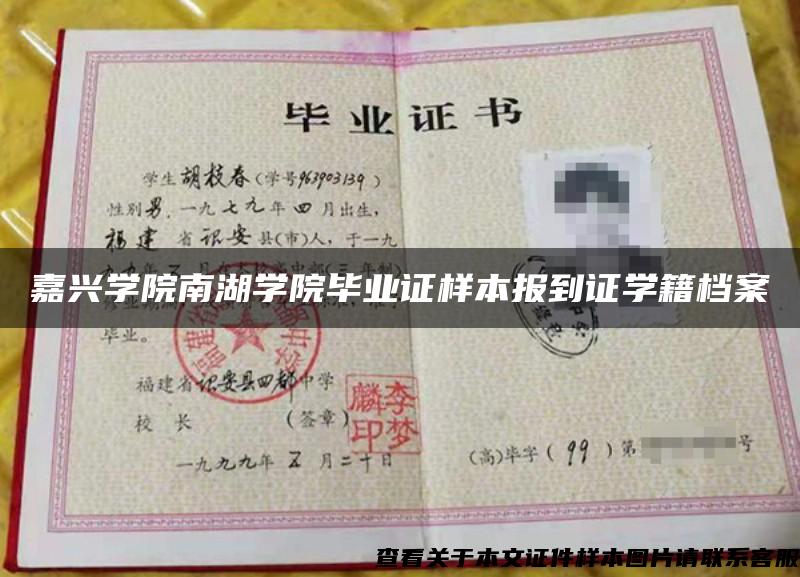 毕业证书
学生胡枝春(学号963903139)
性别男,一九七九年四月出生,
福建省诏安县(市)人,于一九
嘉兴学院南湖学院毕业证样本报到证学籍档案
毕业。
福建省诏安县四都中学
校 长 (签章)
李梦麟印
一九九九年五月二十日
(高)毕字(99)第 号
查看关于本文证件样本图片请联系客服